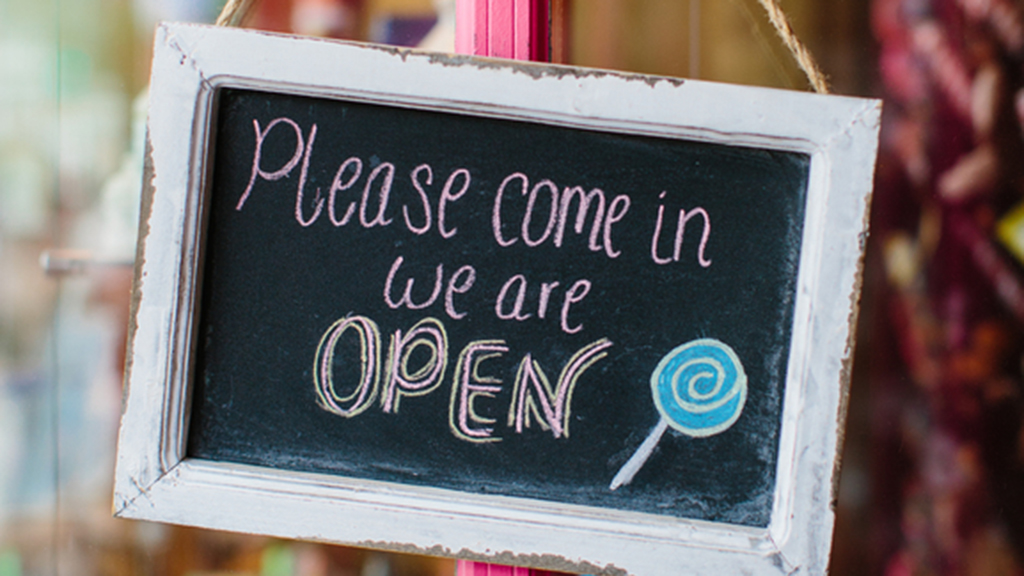 Please come in
we are
OPEN